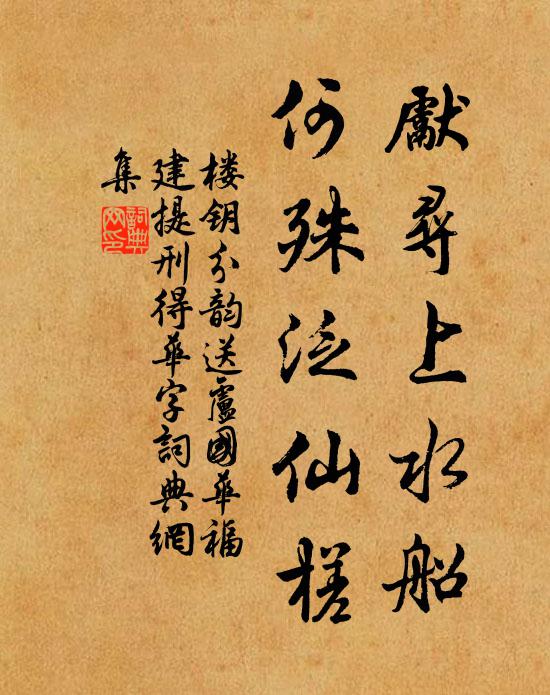 獻尋上水船
何殊泛仙槎
楼钥分韵送盧國華福
建提刑得華字詞典網
集
詞典網印